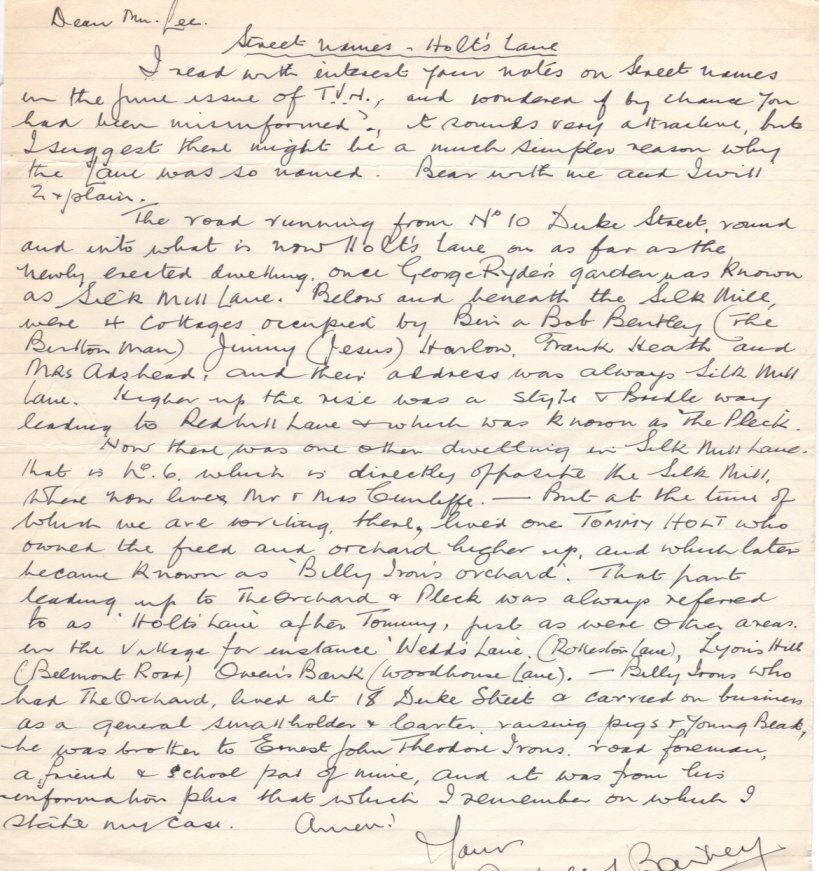 Dear Mr. Lee.
Street Names - Holt's Lane
I read with interest your notes on Street names
in the June issue of T.V.N., and wondered if by chance you
had been misinformed?, it sounds very attractive, but
I suggest there might be a much simpler reason why
the Lane was so named. Bear with me and I will
Explain.
The road running from No 10 Duke Street, round
and into what is now Holt's Lane on as far as the
newly erected dwelling, once George Ryder's garden, was known
as Silk Mill Lane. Below and beneath the Silk Mill,
were 4 Cottages occupied by Bob Bentley (The
Man) Jimmy (Jesus) Harlow, Frank Heath and
Mrs Adshead, and their address was always Silk Mill
Lane. Higher up the rise was a style & Bridle way
leading to Redhill Lane & which was known as "The Pleck.
Now there was one other dwelling in Silk Mill Lane.
that is No. 6. which is directly opposite the Silk Mill,
where now lives Mr & Mrs Cunliffe. — But at the time of
which we are writing, there, lived one TOMMY HOLT who
owned the field and orchard higher up, and which later
became known as 'Billy Iron's orchard'. That part
leading up to The Orchard & Pleck was always referred
to as 'Holt's Lane' after Tommy, just as were other areas.
in the Village for instance 'Wedd's Lane. (Rolleston Lane), Lyon's Hill
(Belmont Road) Owen's Bank (Woodhouse Lane). — Billy Irons who
had The Orchard, lived at 18 Duke Street & carried on business
as a general smallholder & Carter raising pigs & Young Beasts,
he was brother to Ernest John Theodore Irons. road foreman,
a friend & School pal of mine, and it was from his
information plus that which I remember on which I
state my case. Amen!
Yours
Bailey.